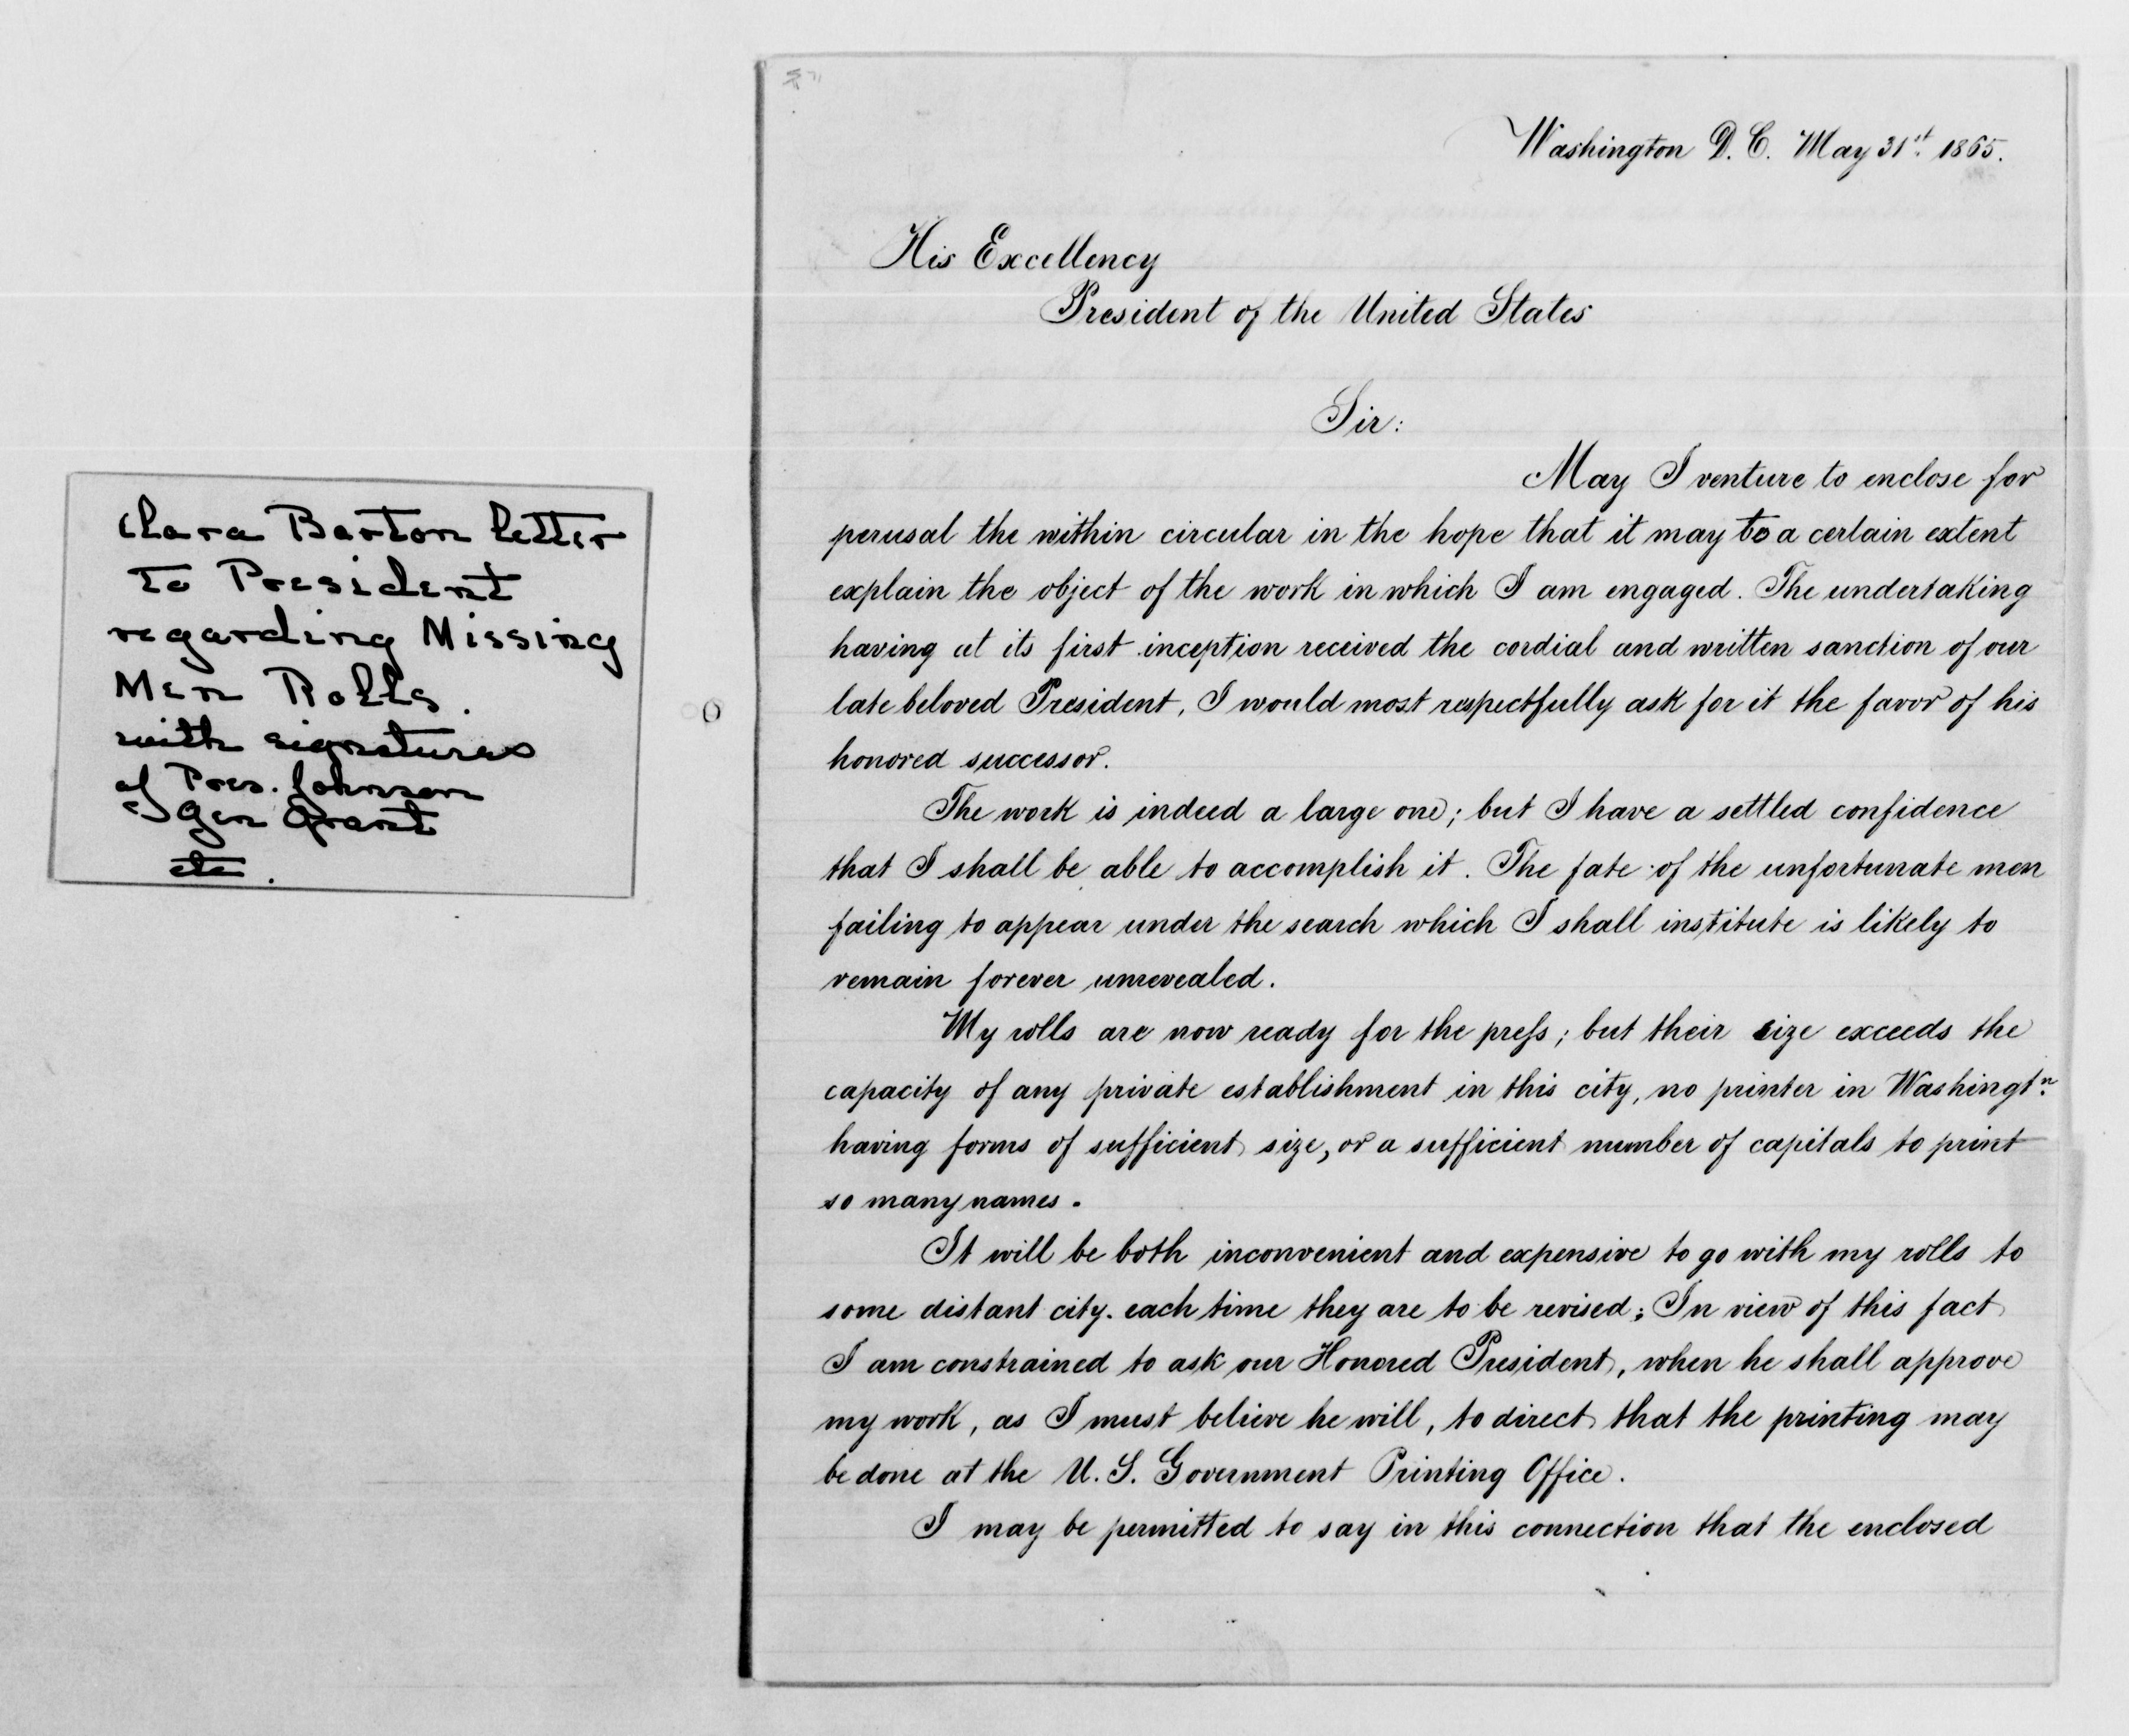 Clara Barton letter
to President
regarding Missing
Men Rolls.
with signatures
of Pres. Johnson
& Gen Grant
etc.
Washington D. C. May 31st. 1865.
His Excellency
President of the United States
Sir:
May I venture to enclose for
perusal the within circular in the hope that it may to a certain extent
explain the object of the work in which I am engaged. The undertaking
having at its first inception received the cordial and written sanction of our
late beloved President, I would most respectfully ask for it the favor of his
honored successor.
The work is indeed a large one; but I have a settled confidence
that I shall be able to accomplish it. The fate of the unfortunate men
failing to appear under the search which I shall institute is likely to
remain forever unrevealed.
My rolls are now ready for the press; but their size exceeds the
capacity of any private establishment in this city, no printer in Washingtn.
having forms of sufficient size, or a sufficient number of capitals to print
so many names.
It will be both inconvenient and expensive to go with my rolls to
some distant city. each time they are to be revised; In view of this fact
I am constrained to ask our Honored President, when he shall approve
my work, as I must believe he will, to direct that the printing may
be done at the U. S. Government Printing Office.
I may be permitted to say in this connection that the enclosed